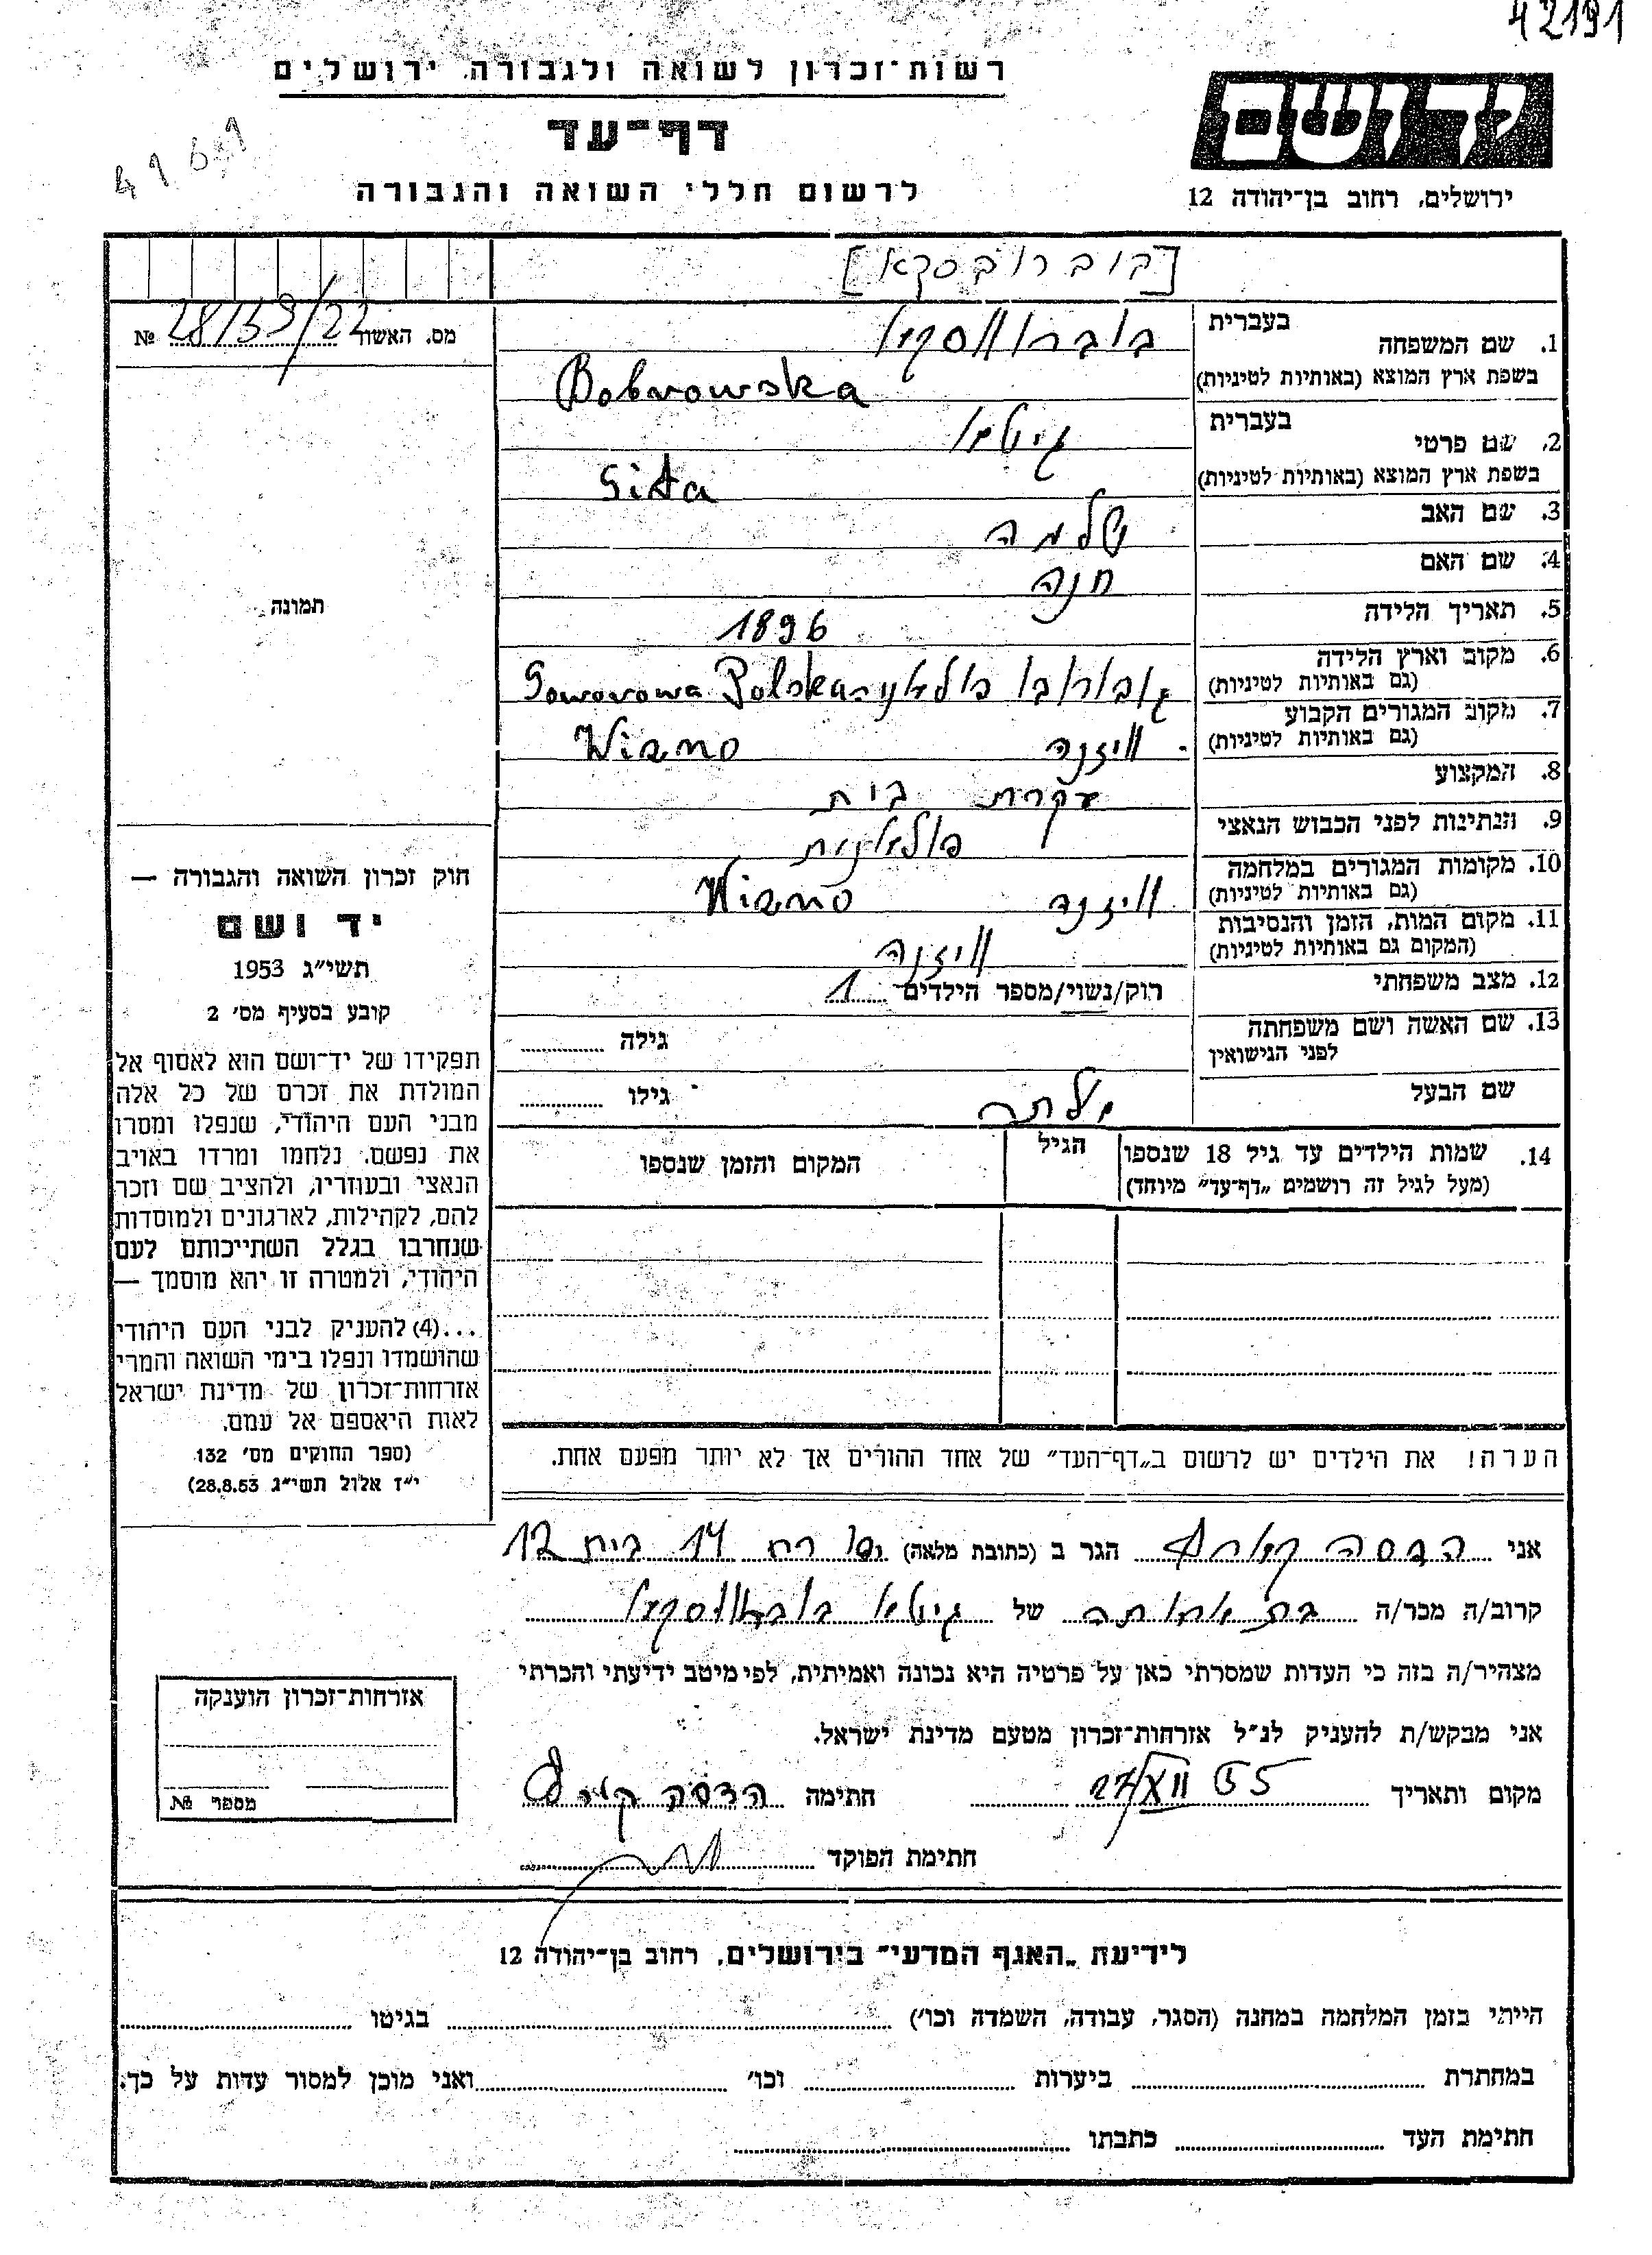 42191
רשות־זכרון לשואה ולגבורה, ירושלים
יד ושם
דף־עד
4969
לרשום חללי השואה והגבורה
ירושלים, רחוב בן־יהודה 12
[קוברובסקא]
מס. האשור 28/59/22 №
1. שם המשפחה
בעברית
בוברווסקא
בשפת ארץ המוצא (באותיות לטיניות)
Bobrowska
2. שם פרטי
בעברית
גיטא
בשפת ארץ המוצא (באותיות לטיניות)
Gita
3. שם האב
שלמה
4. שם האם
חנה
תמונה
5. תאריך הלידה
1896
6. מקום וארץ הלידה
(גם באותיות לטיניות)
גובורובו פולאני- Goworowa Polska
7. מקום המגורים הקבוע
(גם באותיות לטיניות)
וויזנה Wizno
8. המקצוע
עקרת בית
9. הנתינות לפני הכבוש הנאצי
פולאנית
10. מקומות המגורים במלחמה
(גם באותיות לטיניות)
וויזנה Wizno
11. מקום המות, הזמן והנסיבות
(המקום גם באותיות לטיניות)
וויזנה
12. מצב משפחתי
רוק/נשוי/מספר הילדים 1
13. שם האשה ושם משפחתה
לפני הנישואין
גילה
שם הבעל
גילו
14. שמות הילדים עד גיל 18 שנספו
(מעל לגיל זה רושמים „דף־עד" מיוחד)
הגיל
המקום והזמן שנספו
חוק זכרון השואה והגבורה —
יד ושם
תשי"ג 1953
קובע בסעיף מס' 2
תפקידו של יד־ושם הוא לאסוף אל
המולדת את זכרם של כל אלה
מבני העם היהודי, שנפלו ומסרו
את נפשם, נלחמו ומרדו באויב
הנאצי ובעוזריו, ולהציב שם וזכר
להם, לקהילות, לארגונים ולמוסדות
שנחרבו בגלל השתייכותם לעם
היהודי, ולמטרה זו יהא מוסמך —
...(4) להעניק לבני העם היהודי
שהושמדו ונפלו בימי השואה והמרי
אזרחות־זכרון של מדינת ישראל
לאות היאספם אל עמם.
(ספר החוקים מס' 132
י"ז אלול תשי"ג 28.8.53)
הערה! את הילדים יש לרשום ב„דף־העד" של אחד ההורים אך לא יותר מפעם אחת.
אני הדסה הגר ב (כתובת מלאה) רח 14 בית 12
קרוב/ה מכר/ה בת אחותה של גיטא בוברווסקא
מצהיר/ה בזה כי העדות שמסרתי כאן על פרטיה היא נכונה ואמיתית, לפי מיטב ידיעתי והכרתי
אני מבקש/ת להעניק לנ"ל אזרחות־זכרון מטעם מדינת ישראל.
מקום ותאריך 27/XII 55 חתימה הדסה
חתימת הפוקד
אזרחות־זכרון הוענקה
מספר №
לידיעת „האגף המדעי" בירושלים, רחוב בן־יהודה 12
הייתי בזמן המלחמה במחנה (הסגר, עבודה, השמדה וכו') בגיטו
במחתרת ביערות וכו' ואני מוכן למסור עדות על כך.
חתימת העד כתבתו